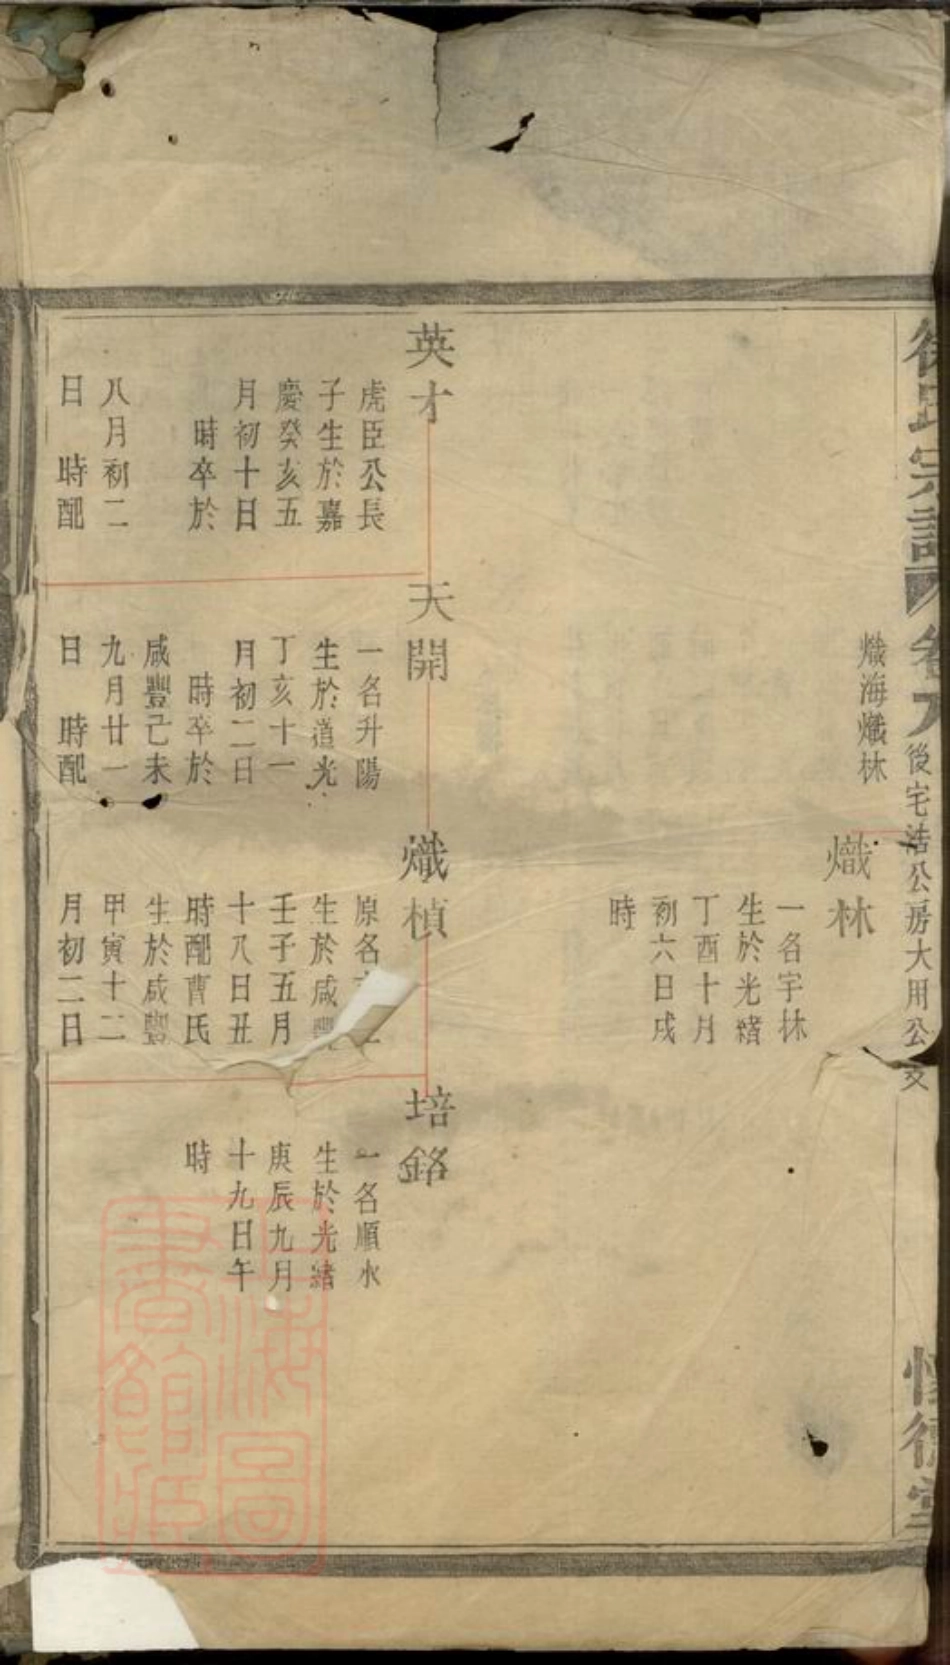 徐氏宗譜
卷
後宅浩公房大用公支
德堂
熾海熾林
熾林
一名宇林
生於光緒
丁酉十月
初六日戌
時
英才
虎臣公長
子生於嘉
慶癸亥五
月初十日
時卒於
八月初二
日 時配
天開
一名升陽
生於道光
丁亥十一
月初二日
時卒於
咸豐己未
九月廿一
日 時配
熾楨
原名
生於咸豐
壬子五月
十八日丑
時配曹氏
生於咸豐
甲寅十二
月初二日
培銘
一名順水
生於光緒
庚辰九月
十九日午
時
上海圖書館藏